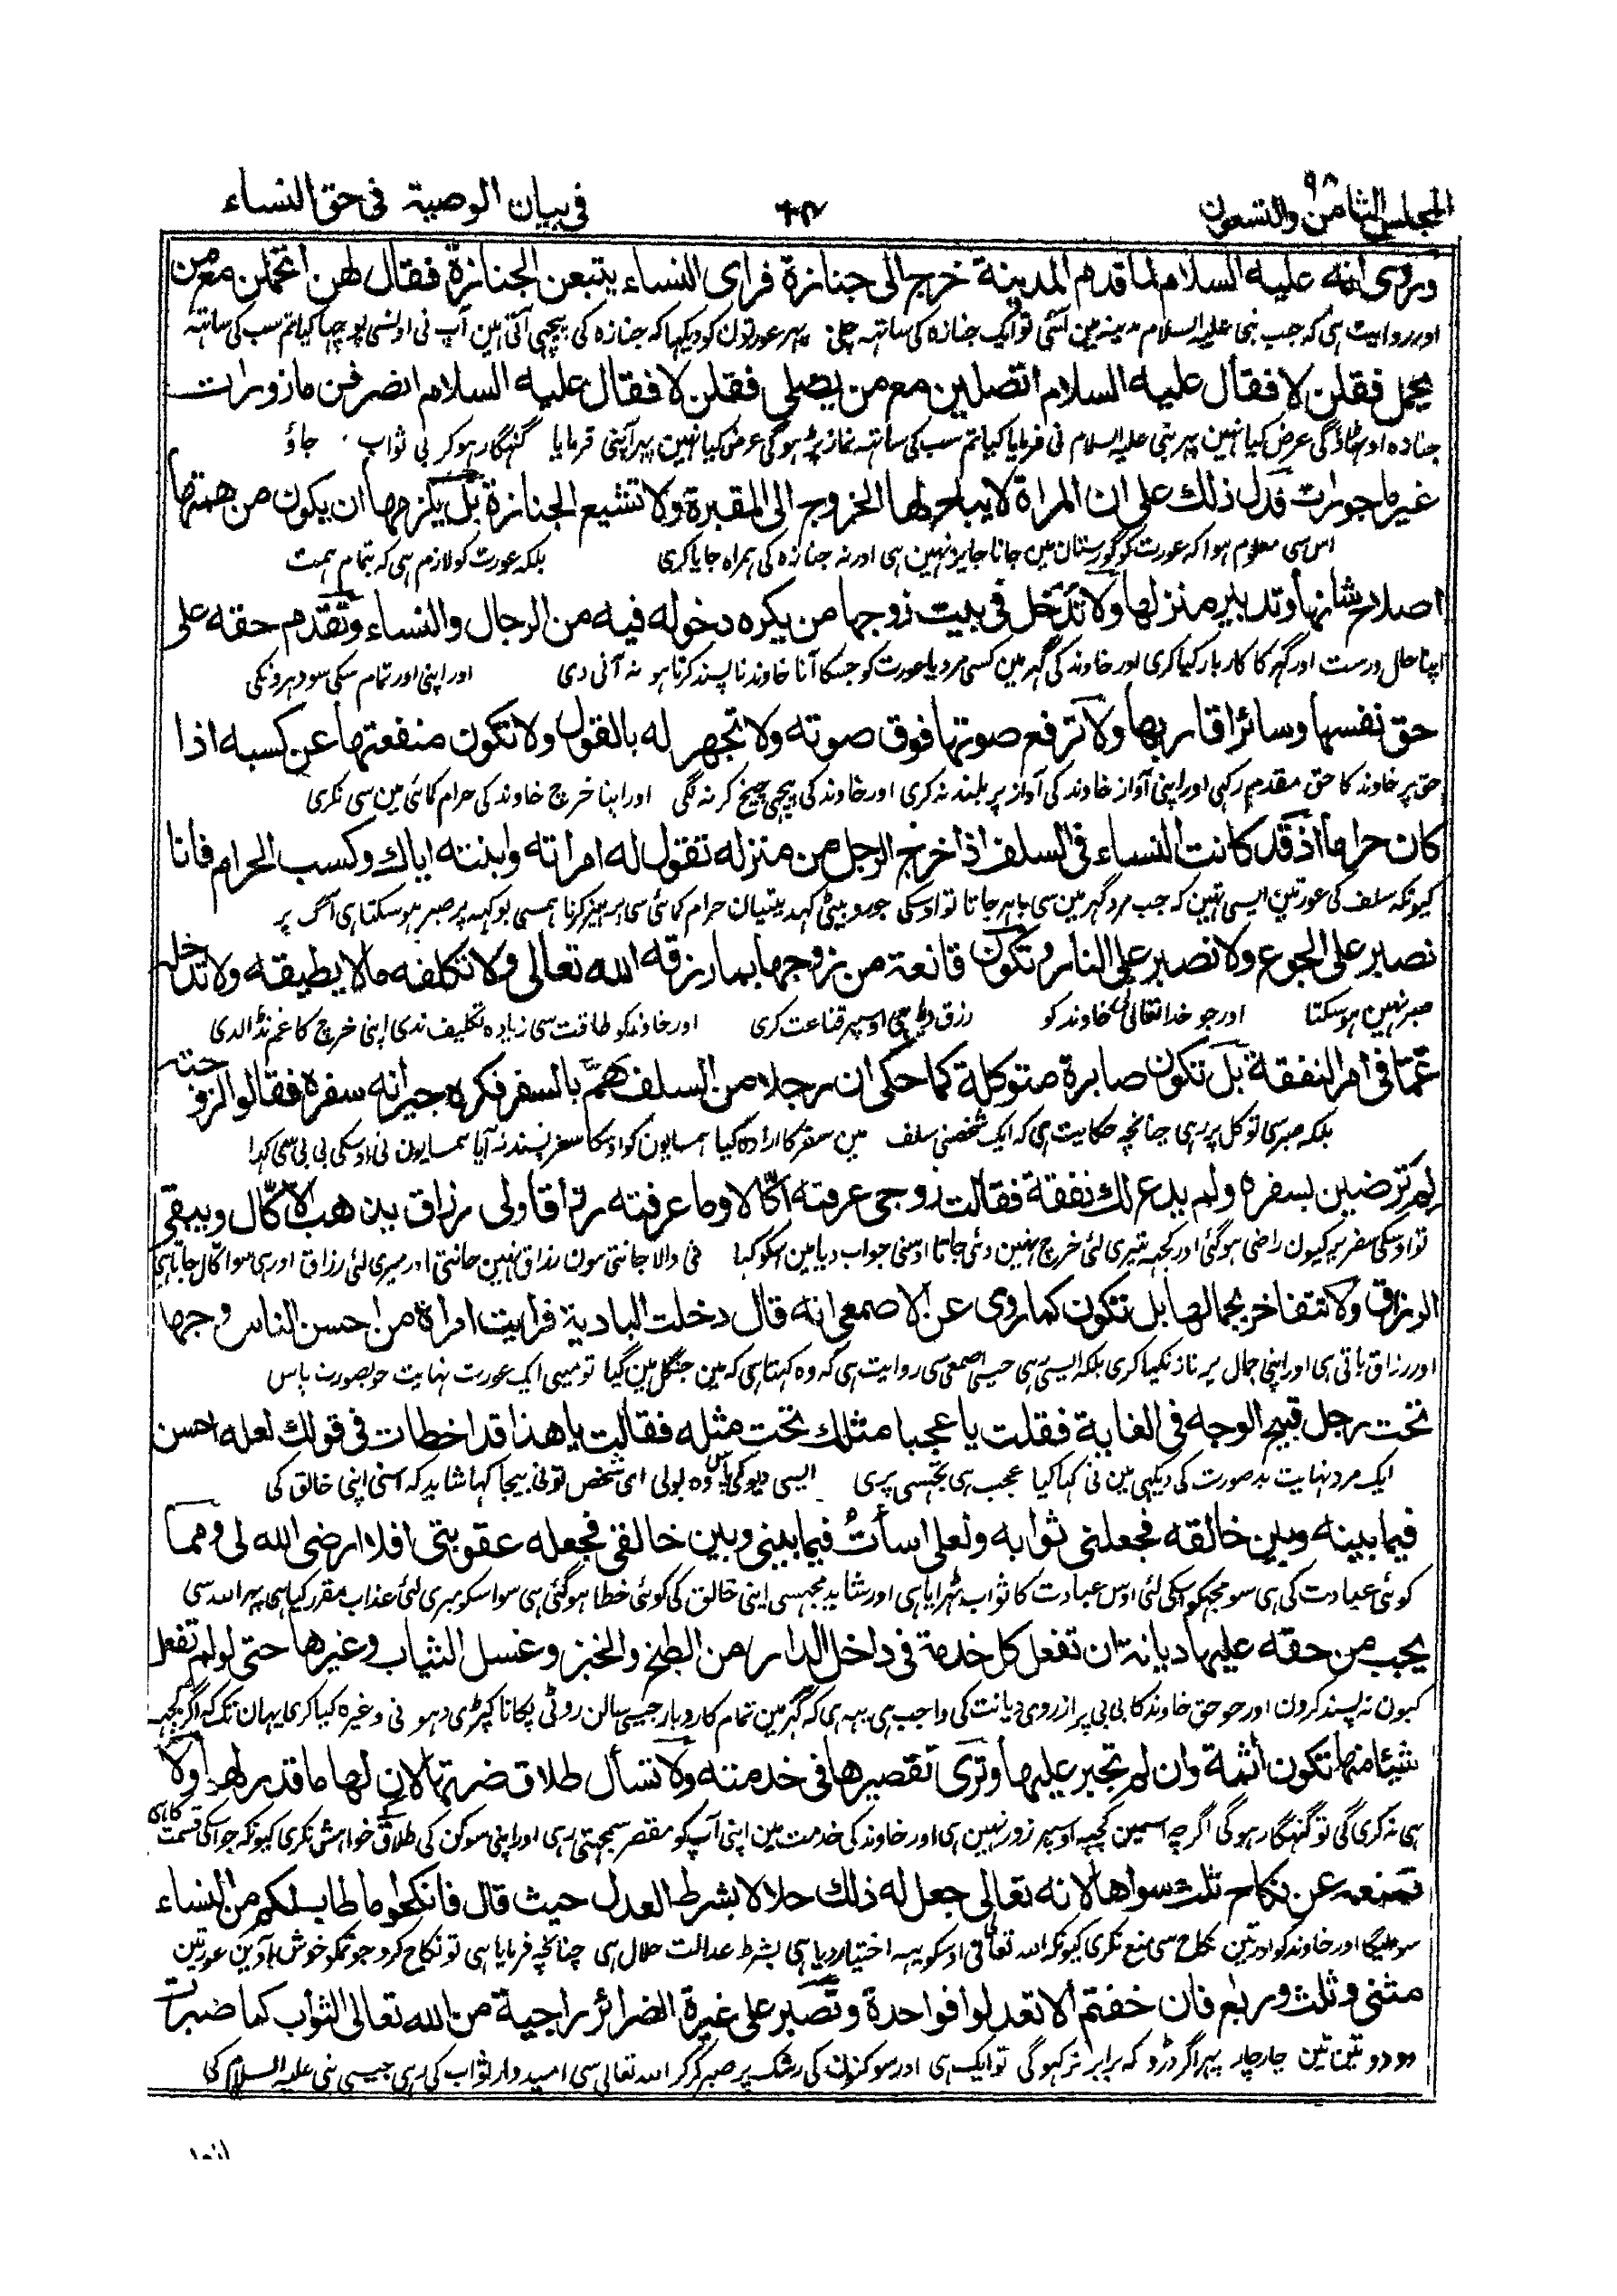 المجلس الثامن والتسعون ٩٨
٦٠٢
فى بيان الوصية فى حق النساء
وروى انه عليه السلام لما قدم المدينة خرج الى جنازة فراى النساء يتبعن الجنازة فقال لهن اتحملن مع من
اور روایت ہی کہ جب نبی علیہ السلام مدینہ مین آئی تو ایک جنازہ کی ساتھہ چلی پہر عورتون کو دیکہا کہ جنازہ کی پیچہی آتی ہین آپ نی اونسی پوچہا کیا تم سب کی ساتھہ
يحمل فقلن لا فقال عليه السلام اتصلين مع من يصلى فقلن لا فقال عليه السلام انصرفن مازورات
جنازہ اوٹہاؤ گی عرض کیا نہین پہر نبی علیہ السلام نی فرمایا کیا تم سب کی ساتھہ نماز پڑہو گی عرض کیا نہین پہر آپنی فرمایا گنہگار ہو کر بی ثواب جاؤ
غير ماجورات فدل ذلك على ان المراة لا يباح لها الخروج الى المقبرة ولا تشيع الجنازة بل يلزمها ان يكون من همتها
اس سی معلوم ہوا کہ عورت کو گورستان مین جانا جایز نہین ہی اور نہ جنازہ کی ہمراہ جایا کری بلکہ عورت کو لازم ہی کہ بتمام ہمت
اصلاح شانها وتدبير منزلها ولا تدخل فى بيت زوجها من يكره دخوله فيه من الرجال والنساء وتقدم حقه على
اپنا حال درست اور گہر کا کاربار کیا کری اور خاوند کی گہر مین کسی مرد یا عورت کو جسکا آنا خاوند ناپسند کرتا ہو نہ آنی دی اور اپنی اور تمام سکی سودہرونکی
حق نفسها وسائر اقاربها ولا ترفع صوتها فوق صوته ولا تجهر له بالقول ولا تكون منفعتها عن كسبه اذا
حق پر خاوند کا حق مقدم رکہی اور اپنی آواز خاوند کی آواز پر بلند نہ کری اور خاوند کی پیچہی چیخ کر نہ لگی اور اپنا خرچ خاوند کی حرام کمائی مین سی نکری
كان حراما اذ قد كانت النساء فى السلف اذا خرج الرجل من منزله تقول له امراته وابنته اياك وكسب الحرام فانا
کیونکہ سلف کی عورتین ایسی تہین کہ جب مرد گہر مین سی باہر جاتا تو اوسکی جورو بیٹی کہدیتیان حرام کمائی سی پرہیز کرنا ہمسی بوکہہ پر صبر ہو سکتا ہی آگ پر
نصبر على الجوع ولا نصبر على النار وتكون قانعة من زوجها بما رزقه الله تعالى ولا تكلفه مالا يطيقه ولا تدخله
صبر نہین ہو سکتا اور جو خدا تعالی خاوند کو رزق دی اوسپر قناعت کری اور خاوند کو طاقت سی زیادہ تکلیف ندی اپنی خرچ کا غم نڈالدی
غمّا فى امر النفقة بل تكون صابرة متوكلة كما حكى ان رجلا من السلف همّ بالسفر فكره جيرانه سفره فقالوا لزوجته
بلکہ صبر سی توکل پر رہی چنانچہ حکایت ہی کہ ایک شخص نی سلف مین سفر کا ارادہ کیا ہمسایون کو اوسکا سفر پسند نہ آیا ہمسایون نی اوسکی بی بی سی کہا
لم ترضين بسفره ولم يدع لك نفقة فقالت زوجى عرفته اكّالا وما عرفته رزاقا ولى رزاق يذهب الاكّال ويبقى
تو اوسکی سفر پر کیون راضی ہو گئی اور کچہہ تیری لئی خرچ نہین دئی جاتا اوسنی جواب دیا مین اسکو کہانی والا جانتی ہون رزاق نہین جانتی اور میری لئی رزاق اور ہی سو اکال جاتا ہی
الرزاق ولا تتفاخر بجمالها بل تكون كما روى عن الاصمعى انه قال دخلت البادية فرايت امراة من احسن الناس وجها
اور رزاق باقی ہی اور اپنی جمال پر ناز نکیا کری بلکہ ایسی رہی جیسی اصمعی سی روایت ہی کہ وہ کہتا ہی کہ مین جنگل مین گیا تو مینی ایک عورت نہایت خوبصورت پاس
تحت رجل قبيح الوجه فى الغاية فقلت يا عجبا مثلك تحت مثله فقالت يا هذا قد اخطات فى قولك لعله احسن
ایک مرد نہایت بد صورت کی دیکہی مین نی کہا کیا عجب ہی تجہسی پری ایسی دیو کی پاس وہ بولی ای شخص تو نی بیجا کہا شاید کہ اسنی اپنی خالق کی
فيما بينه وبين خالقه فجعلنى ثوابه ولعلى اسأتُ فيما بينى وبين خالقى فجعله عقوبتى افلا ارضى الله لى ومما
کوئی عبادت کی ہی سو مجہکو اسکی لئی اوس عبادت کا ثواب ٹہرایا ہی اور شاید مجہسی اپنی خالق کی کوئی خطا ہو گئی ہی سو اسکو میری لئی عذاب مقرر کیا ہی پہر اللہ سی
يجب من حقه عليها ديانة ان تفعل كل خدمة فى داخل الدار من الطبخ والخبز وغسل الثياب وغيرها حتى لو لم تفعل
کیون نہ پسند کرون اور جو حق خاوند کا بی بی پر از روی دیانت کی واجب ہی یہہ ہی کہ گہر مین تمام کاروبار جیسی سالن روٹی پکانا کپڑی دہونی وغیرہ کیا کری یہان تک کہ اگر کچہہ
شيئا منها تكون آثمة وان لم تجبر عليها وترى تقصيرها فى خدمته ولا تسأل طلاق ضرتها لان لها ما قدر لها ولا
ہی نہ کری گی تو گنہگار ہو گی اگرچہ اسمین کچہہ اوسپر زور نہین ہی اور خاوند کی خدمت مین اپنی آپ کو مقصر سمجہتی رہی اور اپنی سوکن کی طلاق خواہش نکری کیونکہ جو اسکی قسمت کا ہی
تمنعه عن نكاح ثلث سواها لانه تعالى جعل له ذلك حلالا بشرط العدل حيث قال فانكحوا ما طاب لكم من النساء
سو ملیگا اور خاوند کو اور تین نکاح سی منع نکری کیونکہ اللہ تعالی نی اوسکو یہہ اختیار دیا ہی بشرط عدالت حلال ہی چنانچہ فرمایا ہی تو نکاح کرو جو تمکو خوش آوین عورتین
مثنى وثلث وربع فان خفتم الا تعدلوا فواحدة وتصبر على غيرة الضرائر راجية من الله تعالى الثواب كما صبرت
دو دو تین تین چار چار پہر اگر ڈرو کہ برابر نرکہو گی تو ایک ہی اور سوکنون کی رشک پر صبر کر کر اللہ تعالی سی امیدوار ثواب کی رہی جیسی نبی علیہ السلام کی